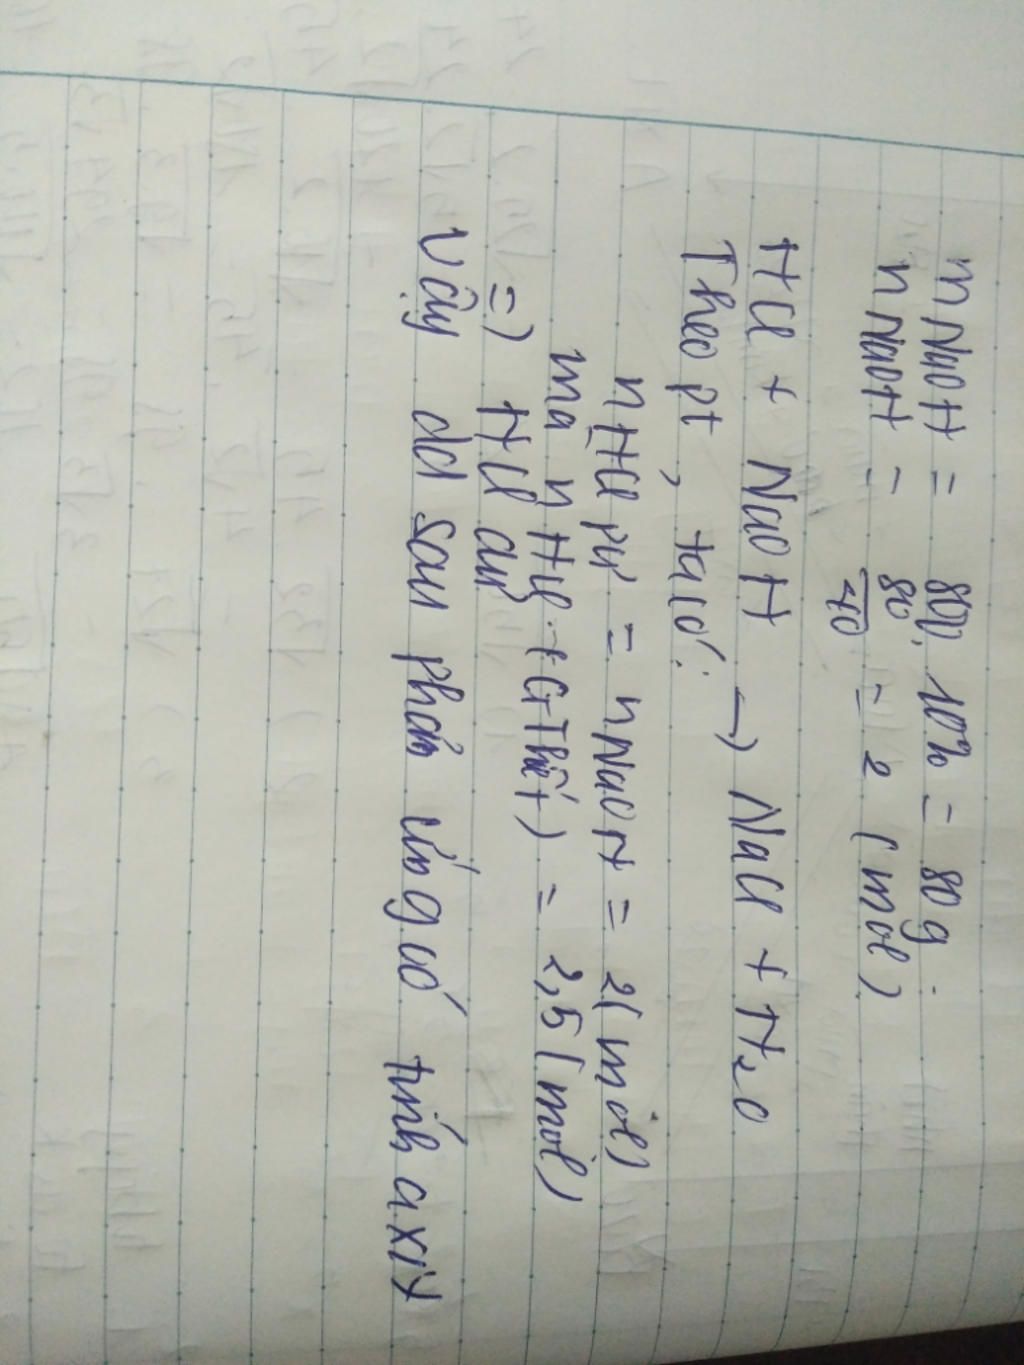 mNaOH = 800. 10% = 80g.
nNaOH = 80/40 = 2 (mol)
HCl + NaOH → NaCl + H₂O
Theo pt, ta có:
nHCl pư = nNaOH = 2 (mol)
mà nHCl (GThiết) = 2,5 (mol)
=) HCl dư
Vậy dd sau phản ứng có tính axit